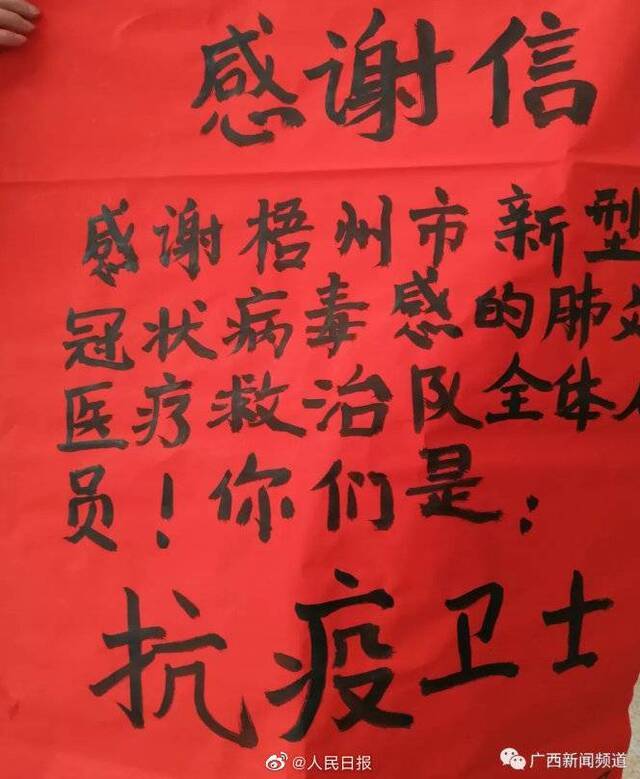 感谢信
感谢梧州市新型
冠状病毒感的肺炎
医疗救治队全体人
员！你们是：
抗疫卫士
@人民日报
广西新闻频道